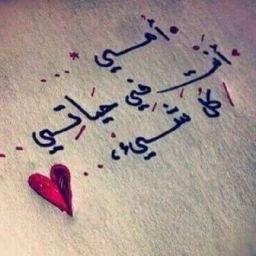 أمي
أنت
كل شيء
في حياتي